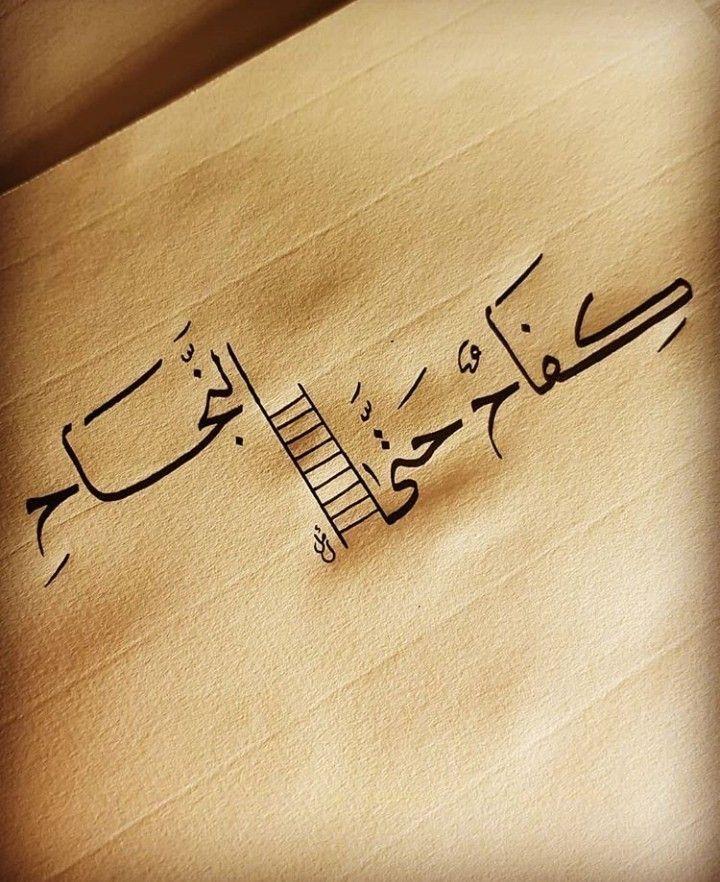 كِفَاحٌ حَتَّىٰ النَّجَاحِ